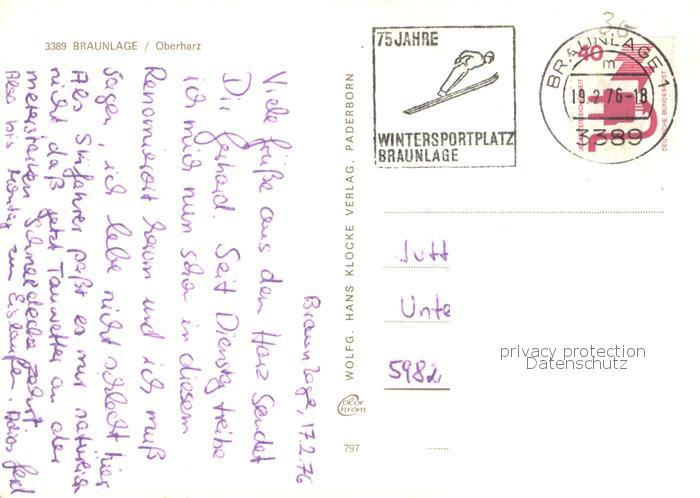 3389 BRAUNLAGE / Oberharz
Braunlage, 17.2.76
Viele Grüße aus dem Harz sendet
Dir Gerhard. Seit Dienstag treibe
ich mich nun schon in diesem
Renomierort herum und ich muß
sagen, ich lebe nicht schlecht hier.
Als Skifahrer paßt es mir natürlich
nicht daß jetzt Tauwetter an der
meterstarken Schneedecke zehrt.
Also bis Montag zum Eislaufen. Adios Gerd
WOLFG. HANS KLOCKE VERLAG, PADERBORN
Color
chrom
797
75 JAHRE
WINTERSPORTPLATZ
BRAUNLAGE
BRAUNLAGE 1
m
19.2.76-18
3389
40
DEUTSCHE BUNDESPOST
35
Jutt
Unte
5982
privacy protection
Datenschutz